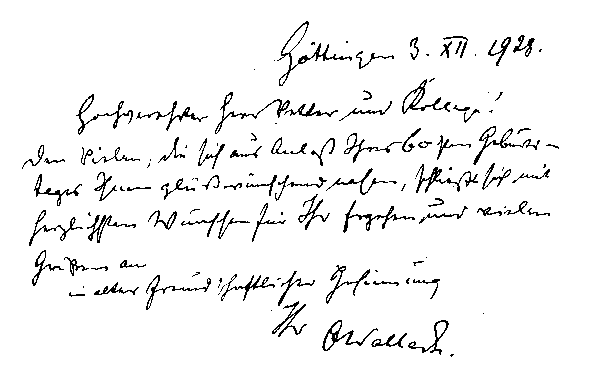 Göttingen 3. XII. 1928.
Hochverehrter Herr Vetter und Kollege!
Den Vielen, die sich aus Anlaß Ihres 60sten Geburts-
tages Ihnen glückwünschend nahen, schließt sich mit
herzlichsten Wünschen für Ihr Ergehen und vielen
Grüßen an
in alter freundschaftlicher Gesinnung
Ihr
OWallach.